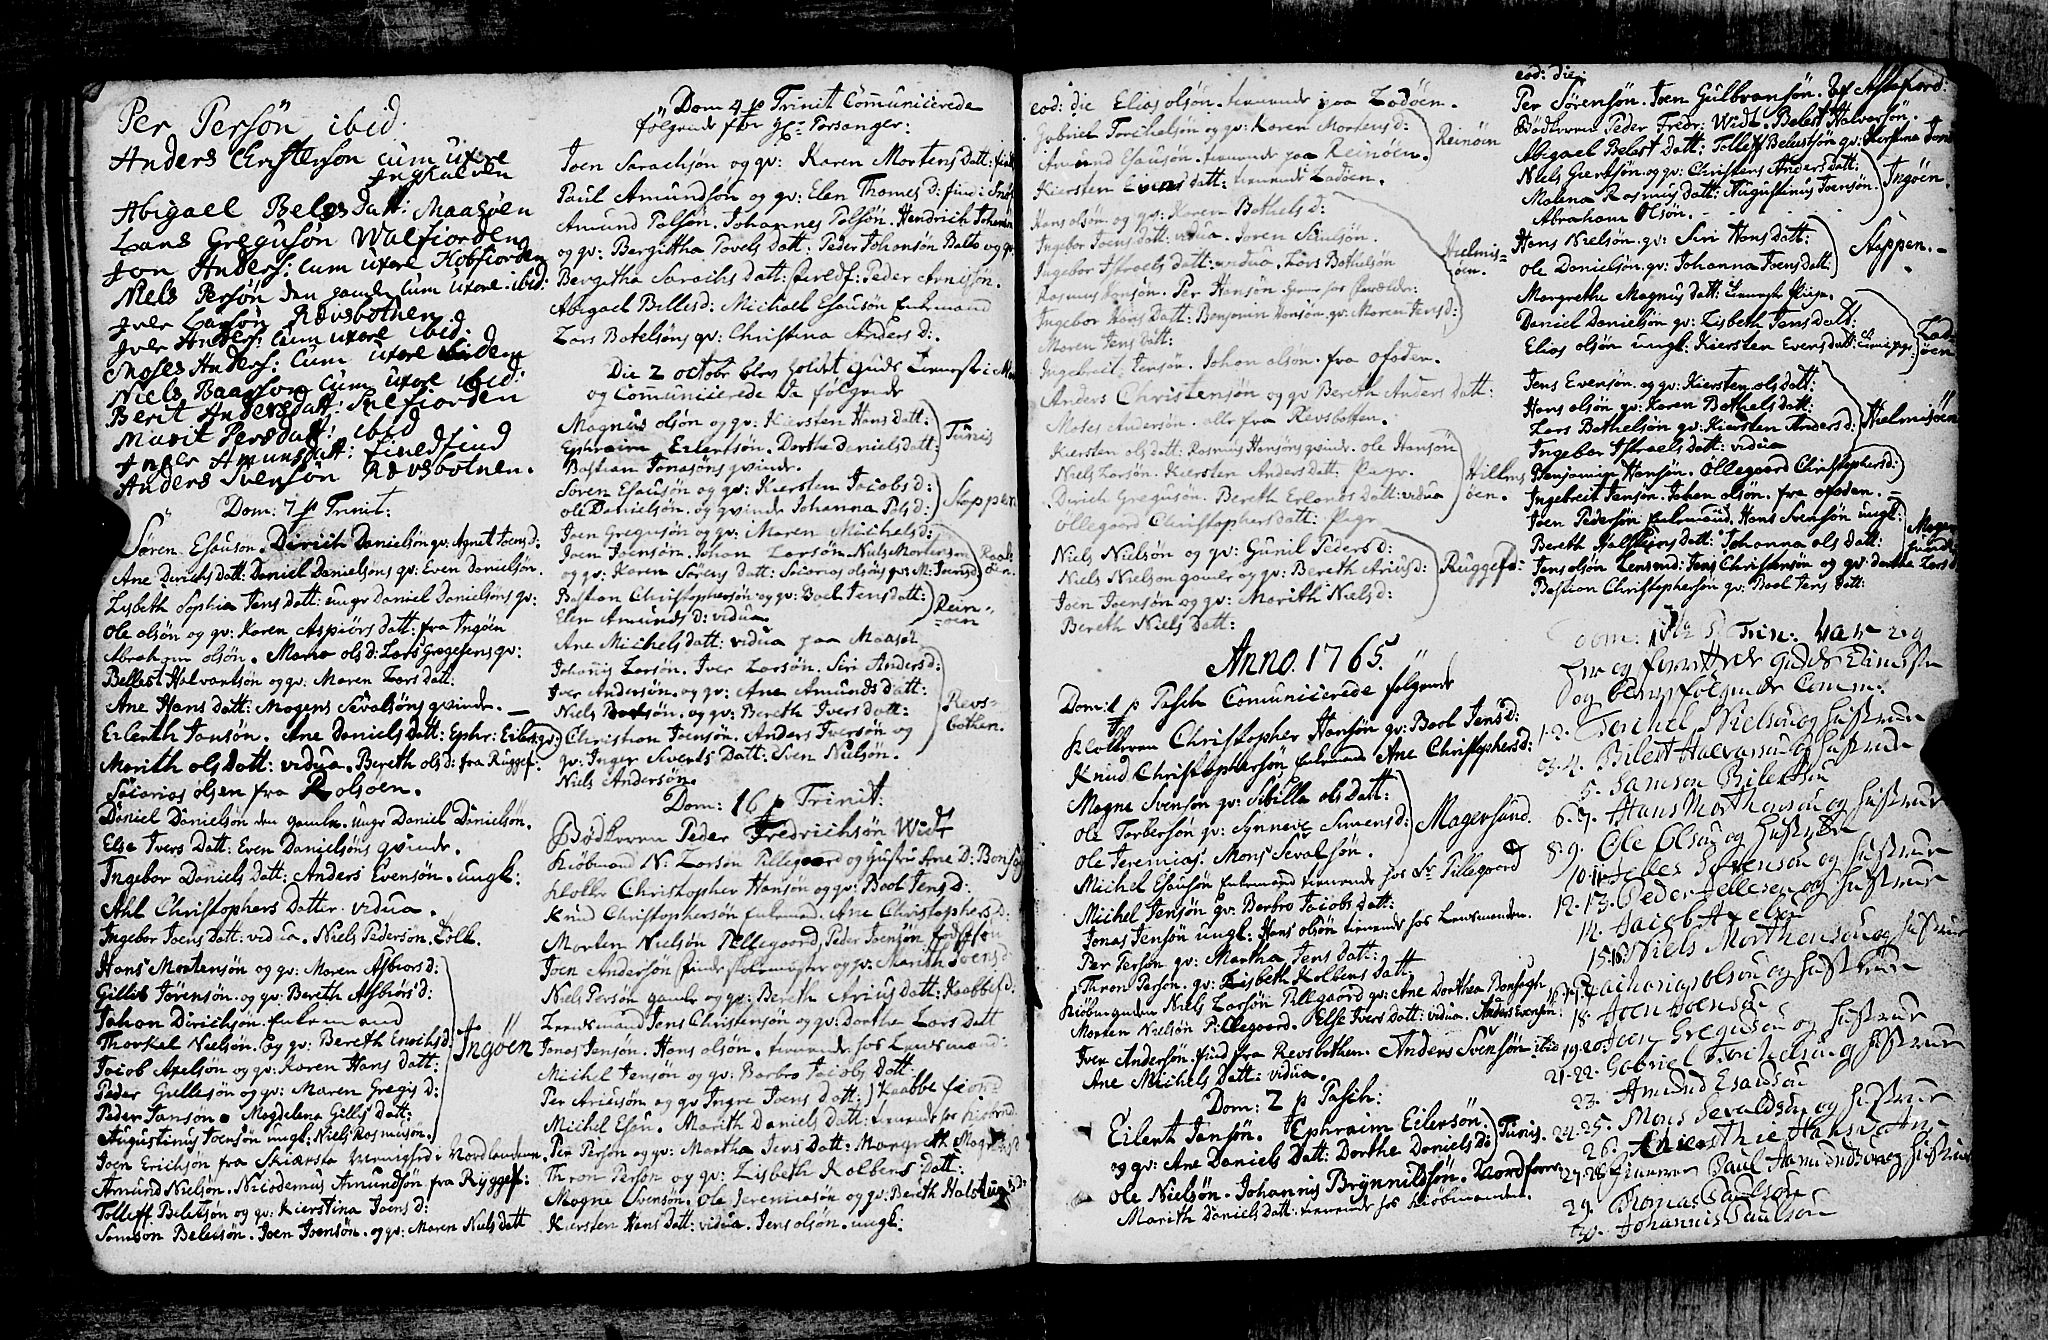 Per Persön ibid.
Anders Christenson cum uxore
Abigael Belesdatt: Maasöen
Lars Gregusön Walfiorden
Jon Anders: cum uxore Kobfiorden
Niels Persön den gamle cum uxore ibid:
Iver Larsön Revsbotnen
Iver Anders: cum uxore ibid:
Moses Anders: cum uxore ibidem
Niels Baarson cum uxore ibid:
Berit Andersdatt:
Marit Persdatt: ibid
Inger Amunsdatt:
Anders Svensön Revsbotnen.
Dom: 7 p Trinit:
Sören Esauson. Dirich Danielson gv: Agnet Joensd:
Ane Derichs datt: Daniel Danielsöns gv: Even Danielsön.
Lisbeth Sophia Jens datt: unge Daniel Danielsöns gv:
Ole olsön og gv: Karen Aspiörs datt: fra Ingöen
Abraham olsön. Maria ols d: Lars Gregesens gv:
Bellest Halvorsön og gv: Maren Lars datt:
Ane Hans datt: Mogens Sevalsöns qvinde.
Erlenth Jansön. Ane Daniels Datt: Ephr: Eilers gv:
Marith ols Datt: vidua. Bereth ols d: fra Rüggef:
Saiarias olsen fra Rolsöen.
Daniel Danielsön den gamle. unge Daniel Danielsön.
Else Ivers Datt: Even Danielsöns qvinde.
Ingebor Daniels Datt: Anders Evensön. ungk:
Ahl Christophers Datter. vidua.
Ingebor Joens Datt: vidua. Niels Pederson.
Hans Mortensön og gv: Maren Asbiors d:
Gillis Jörensön. og gv: Bereth Asbiörs d:
Johan Dirichsön.
Thorkel Nielsön. og gv: Bereth Enochs d:
Jacob Axelson og gv: Karen Hans datt:
Peder Gullesön og gv: Maren Gregis d:
Peder Jansön. Magdelena Gillis datt:
Augustinus Joensön ungk: Niels Rasmuson.
Ingöen
Joen Erichsön fra
Amund Nielsön. Nicodemus Amundsön fra Rüggef:
Tolleff Beletsön og gv: Kierstina Joens d:
Samson Beletsön. Joen Joensön. og gv: Maren Niels datt
Dom 4 p Trinit Communicerede
følgende
Joen Sarachsön og gv: Karen Mortens Datt:
Paul Amundsön og gv: Elen Thomes d:
Amund Polsön. Johannes Polsön. Hendrich Johansön
og gv: Bergitha Povels datt. Peder Johansön Balto og gv:
Bergitha Sarachs datt: Peder Arnesön.
Abigael Billes d: Michael Esausön
Lars Botelsöns gv: Christina Anders d:
Die 2 octobr blev holdet Guds
og Comuniicerede da følgende
Magnus olsön og gv: Kiersten Hans datt:
Ephraim Eilertsön. Dorthe Daniels datt:
Bastian Jonasöns qvinde.
Tunis
Sören Esausön og gv: Kiersten Jacobs d:
ole Danielsön. og qvinde Johanna Pols d:
Stappen
Joen Gregusön og gv: Maren Michels d:
Joen Joensön. Johan Larsön. Niels Mortensön
og gv: Karen Sörens datt: Saiarias olsöns gv: M: Jens d:
Bastian Christophersön og gv: Boel Jens datt:
Elen Amunds d: vidua.
Rein-
öen
Ane Michels datt: vidua paa Maasöe
Johanis Larsön. Iver Larsön. Siri Anders d:
Iver Andersön. og gv: Ane Amunds datt:
Niels Bootsön. og gv: Bereth Ivers datt:
Christian Jensön. Anders Iversön og
gv: Inger Siverts Datt: Sven Nielsön.
Niels Andersön.
Revs-
bothen.
Dom: 16 p Trinit:
Bödkeren Peder Fredrichsön Widt
Kiöbmand N: Larsön Pillegaard og Hustru Ane D: Bonsag
Klokker Christopher Hansön og gv: Boel Jens d:
Knud Christophersön Ane Christophers d:
Morten Nielsön Pillegaard, Peder Joensön
Joen Andersön og gv: Marith Joens d:
Niels Persön gamle og gv: Bereth Arius datt:
Lensmand Jens Christensön og gv: Dorthe Lars datt
Jonas Jensön. Hans olsön. tienende hos Lensmand:
Michel Jensön og gv: Barbro Jacobs datt:
Per Ariusön og gv Ingre Joens datt:
Michel Esau. Marith Daniels Datt: tienende hos
Per Persön og gv: Martha Jens datt: Margreth Magnus
Thron Person og gv: Lisbeth Kolbens datt:
Magne Svensön. Ole Jeremiasön og gv: Bereth
Kiersten Hans datt: vidua. Jens olsön. ungk:
eod: die Elias olsön. tienende paa Ladöen.
Gabriel Torchelsön og gv: Karen Mortens d:
Amund Esausön. tienende paa Reinöen.
Reinöen
Kiersten Evens datt: tienende Ladöen.
Hans olsön og gv: Karen Bothels d:
Ingebor Joens datt: vidua. Joren
Ingebor Israels datt: vidua. Lars Bothelsön
Rasmus Hansön. Per Hansön.
Ingebor Hans Datt: Benjamin Hansön. gv: Maren Jens d:
Maren Jens datt:
Hielmis-
öen.
Ingebreit Jensön. Johan olsön. fra ofoden.
Anders Christensön og gv Bereth Anders datt:
Moses Andersön. alle fra Revsbotten.
Kiersten ols datt: Rasmus Hansöns qvinde. ole Hansön
Niels Larsön. Kiersten Anders datt:
Derich Gregusön. Bereth Erlands datt: vidua
öllegaard Christophers datt:
Hilms
öen.
Niels Nielsön og gv: Gunil Peders d:
Niels Nielson gamle og gv: Bereth Arius d:
Joen Joensön og gv: Marith Niels d:
Bereth Niels Datt:
Ruggefd:
Anno. 1765.
Dom: 1 p Pasch Comunicerede følgende
Klokkeren Christopher Hansön gv: Boel Jens d:
Knud Christophersön Ane Christophers d:
Magne Svensön gv: Sibilla ols datt:
Ole Torbersön gv: Synneve Simens d:
Ole Jeremias: Mons Sevalsön.
Magersund.
Michel Esausön tienende hos Sr Pillegaard
Michel Jensön gv: Barbro Jacobs datt:
Jonas Jensön ungk: Hans olsön tienende hos Lensmanden.
Per Persön gv: Martha Jens datt:
Thron Persön. gv: Lisbeth Kolbens datt:
Niels Larsön Pillegaard gv: Ane Dorthea Bonsagh
Morten Nielsön Pillegaard. Else Ivers datt: vidua. Anders Evensön
Iver Andersön. find fra Revsbothen. Anders Svensön ibid
Ane Michels datt: vidua.
Dom: 2 p Pasch:
Eilert Jansön. Ephraim Eilersön.
og gv: Ane Daniels Datt: Dorthe Daniels d:
Tunis.
Ole Nielsön. Johannis Brynnildsön.
Marith Daniels datt: tienende hos Kiöbmanden.
eod: die
Per Sörensön. Joen Gulbransön.
Bödkeren Peder Fredr: Widt. Belest Halvorsön.
Abigael Belest datt: Tolleff Belestsön gv: Kierstina Joens
Niels Giertsön og gv: Christens Anders datt:
Malena Rasmus datt: Augustinus Joensön
Abraham Olsön.
Ingöen.
Hans Nielsön. gv: Siri Hans datt:
ole Danielsön. gv: Johanna Joens datt:
Stappen.
Margrethe Magnus datt:
Daniel Danielsön gv: Lisbeth Jens datt:
Elias olsön ungk: Kiersten Evens datt:
Lad
öen
Jens Evensön. og gv: Kiersten ols datt:
Hans olsön gv: Karen Bothels datt:
Lars Bothelsön gv: Kiersten Anders d:
Ingebor Israels datt: vidua
Hielmisöen
Benjamin Hansön. öllegaard Christophers d:
Ingebreit Jensön. Johan olsön. fra ofoden.
Joen Pedersön Hans Svensön ungk:
Bereth Halsteins datt: Johanna ols datt:
Jens olsön Jens Christensön og gv: dorthe Lars d
Bastian Christophersön gv: Boel Jens datt:
Mager
sund
Dom: p Trin: var
og følgende Comm:
1-2. Torchel Nielsen og Hustrue
3-4. Bilert Halvorsen og Hustrue
5. Samson Bilertsen
6-7. Hans Morthensen og Hustrue
8-9. Ole Olsen og Hustrue
10-11. Jelles Sörensen og Hustrue
12-13. Peder Jellesen og Hustrue
14. Jacob Axelsen
15-16. Niels Morthensen og Hustrue
16-17. Zacharias olsen og Hustrue
18. Joen Joensen
19-20. Joen Gregusen og Hustrue
21-22. Gabriel Torchelsen og Hustrue
23. Amund Esausen
24-25. Mons Sevaldsen og Hustrue
26.
27-28. Paul Hamundsen og Hustrue
29. Thomas Paulsen
30. Johannis Paulsen